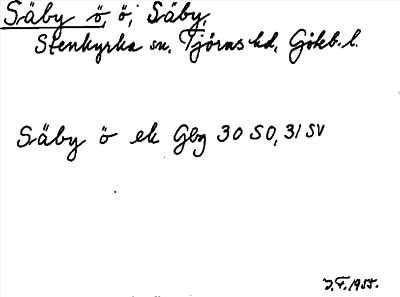 Säby ö, ö, Säby,
Stenkyrka sn, Tjörns hd, Göteb. l.
Säby ö ek Gbg 30 SO, 31 SV
J.F. 1955.